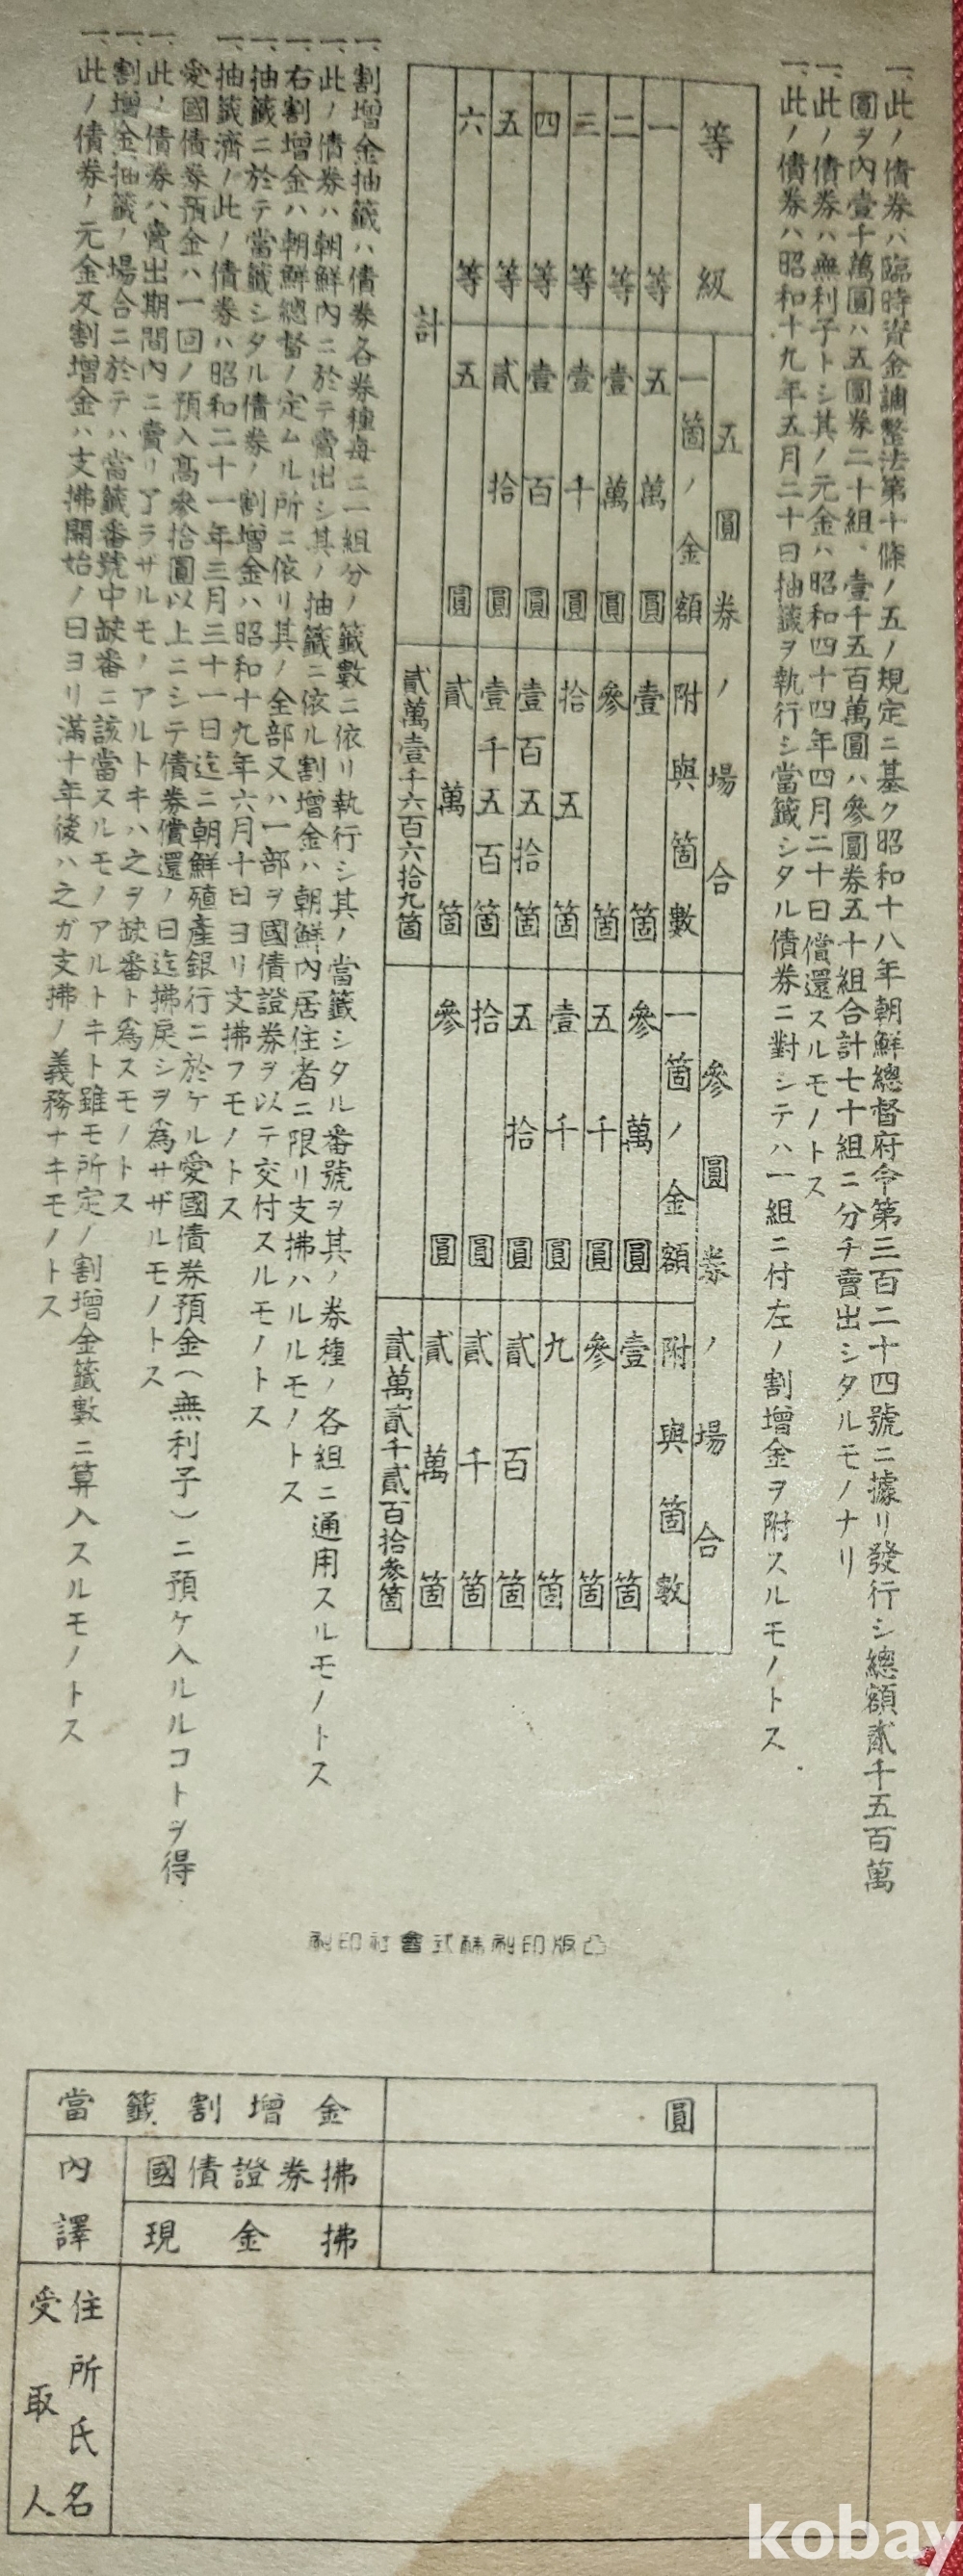 一、此ノ債券ハ臨時資金調整法第十條ノ五ノ規定ニ基ク昭和十八年朝鮮總督府令第三百二十四號ニ據リ發行シ總額貳千五百萬
圓ヲ內壹千萬圓ハ五圓券二十組、壹千五百萬圓ハ參圓券五十組合計七十組ニ分チ賣出シタルモノナリ
一、此ノ債券ハ無利子トシ其ノ元金ハ昭和四十四年四月二十日償還スルモノトス
一、此ノ債券ハ昭和十九年五月二十日抽籤ヲ執行シ當籤シタル債券ニ對シテハ一組ニ付左ノ割增金ヲ附スルモノトス
等級 五圓券ノ場合 參圓券ノ場合
一箇ノ金額 附與箇數 一箇ノ金額 附與箇數
一等 五萬圓 壹箇 參萬圓 壹箇
二等 壹萬圓 參箇 五千圓 參箇
三等 壹千圓 拾五箇 壹千圓 九箇
四等 壹百圓 壹百五拾箇 五拾圓 貳百箇
五等 貳拾圓 壹千五百箇 拾圓 貳千箇
六等 五圓 貳萬箇 參圓 貳萬箇
計 貳萬壹千六百六拾九箇 貳萬貳千貳百拾參箇
一、割增金抽籤ハ債券各券種每ニ一組分ノ籤數ニ依リ執行シ其ノ當籤シタル番號ヲ其ノ券種ノ各組ニ通用スルモノトス
一、此ノ債券ハ朝鮮內ニ於テ賣出シ其ノ抽籤ニ依ル割增金ハ朝鮮內居住者ニ限リ支拂ハルルモノトス
一、右割增金ハ朝鮮總督ノ定ムル所ニ依リ其ノ全部又ハ一部ヲ國債證券ヲ以テ交付スルモノトス
一、抽籤ニ於テ當籤シタル債券ノ割增金ハ昭和十九年六月十日ヨリ支拂フモノトス
一、抽籤濟ノ此ノ債券ハ昭和二十一年三月三十一日迄ニ朝鮮殖產銀行ニ於ケル愛國債券預金(無利子)ニ預ケ入ルルコトヲ得
愛國債券預金ハ一回ノ預入高參拾圓以上ニシテ債券償還ノ日迄拂戾シヲ爲サザルモノトス
一、此ノ債券ハ賣出期間內ニ賣リ了ラザルモノアルトキハ之ヲ缺番ト爲スモノトス
一、割增金抽籤ノ場合ニ於テハ當籤番號中缺番ニ該當スルモノアルトキト雖モ所定ノ割增金籤數ニ算入スルモノトス
一、此ノ債券ノ元金及割增金ハ支拂開始ノ日ヨリ滿十年後ハ之ガ支拂ノ義務ナキモノトス
凸版印刷株式會社印刷
當籤割增金 圓
內譯 國債證券拂
現金拂
受取人 住所氏名
kobay